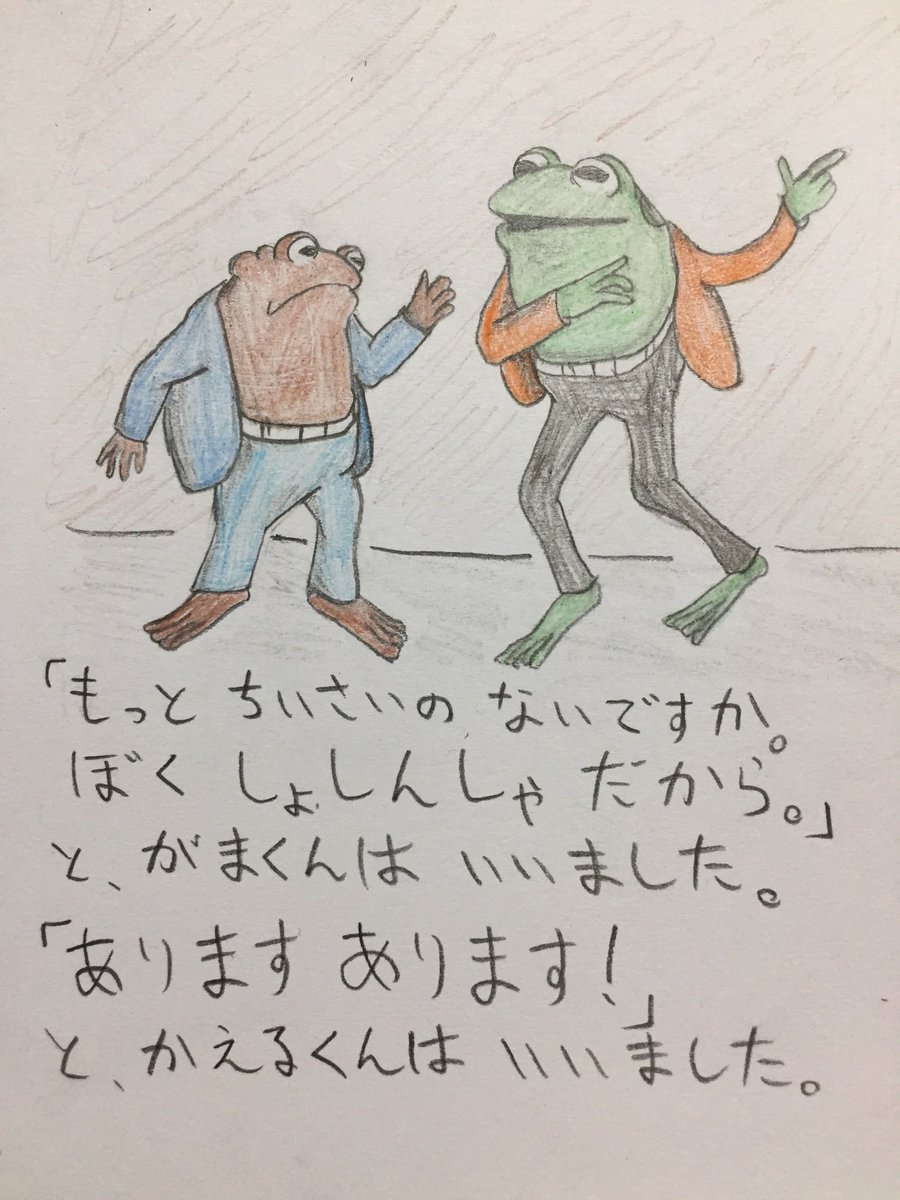 「もっと ちいさいの ないですか。
ぼく しょしんしゃ だから。」
と、がまくんは いいました。
「あります あります!」
と、かえるくんは いいました。